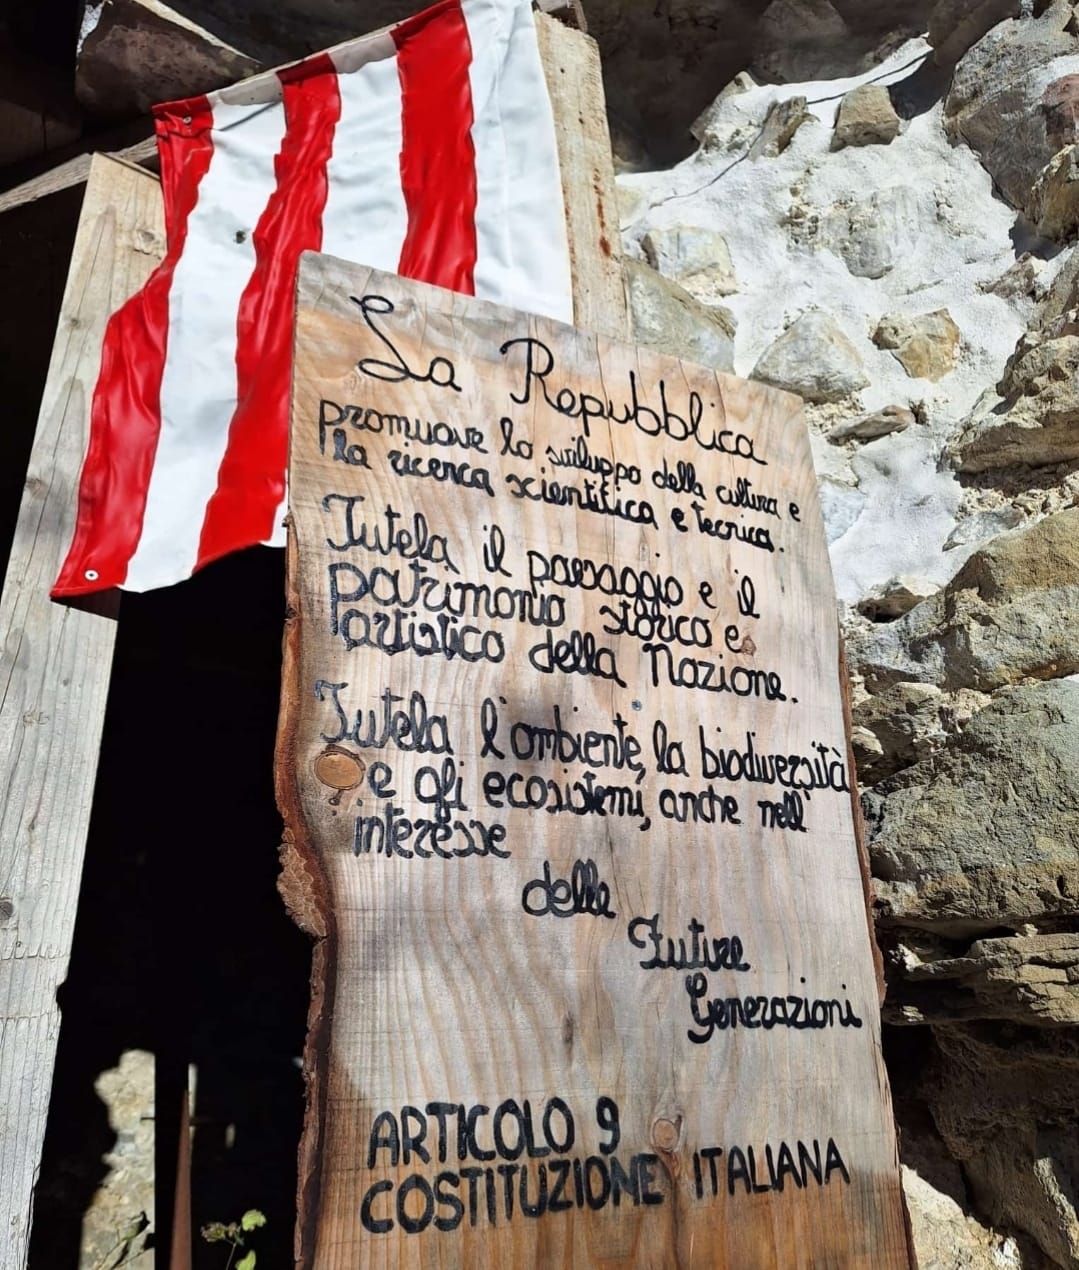 La Repubblica
promuove lo sviluppo della cultura e
la ricerca scientifica e tecnica.
Tutela il paesaggio e il
patrimonio storico e
artistico della Nazione.
Tutela l'ambiente, la biodiversità
e gli ecosistemi, anche nell'
interesse
delle
Future
Generazioni
ARTICOLO 9
COSTITUZIONE ITALIANA